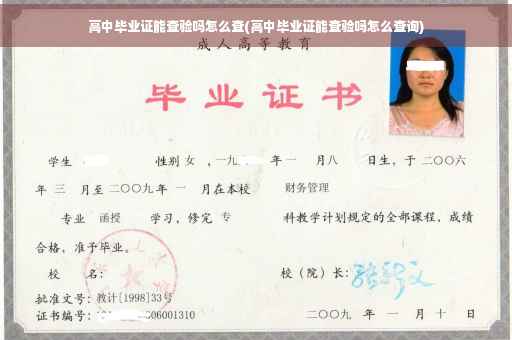 高中毕业证能查验吗怎么查(高中毕业证能查验吗怎么查询)
成人高等教育
毕业证书
学生 性别 女 ，一九 年一 月八 日生，于二〇〇六
年 三 月至二〇〇九年 一 月在本校 财务管理
专业 函授 学习，修完 专 科教学计划规定的全部课程，成绩
合格，准予毕业。
校 名： 校（院）长：
批准文号：教计[1998]33号
证书编号： 06001310 二〇〇九 年 一 月 十 日